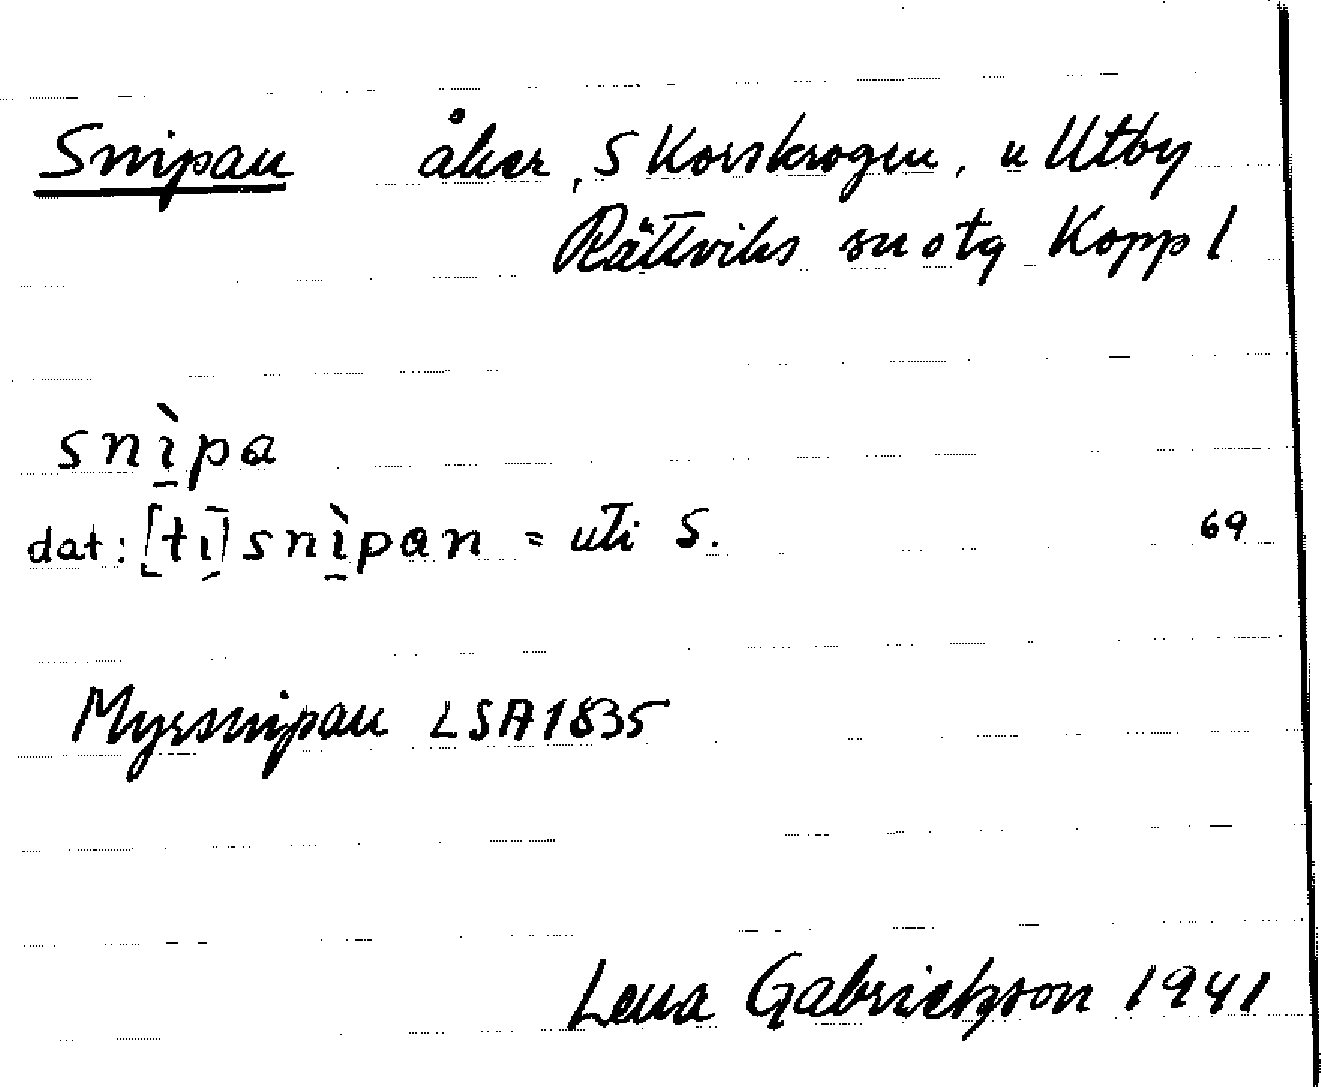 Snipan åker, S Korskrogen, n Utby
Rättviks sn o tg Kopp l
snìpa
dat: [ti] snìpan = uti S. 69
Myrsnipan LSA 1835
Lena Gabrielsson 1941